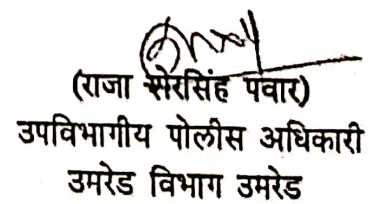 (राजा सेरसिंह पवार)
उपविभागीय पोलीस अधिकारी
उमरेड विभाग उमरेड